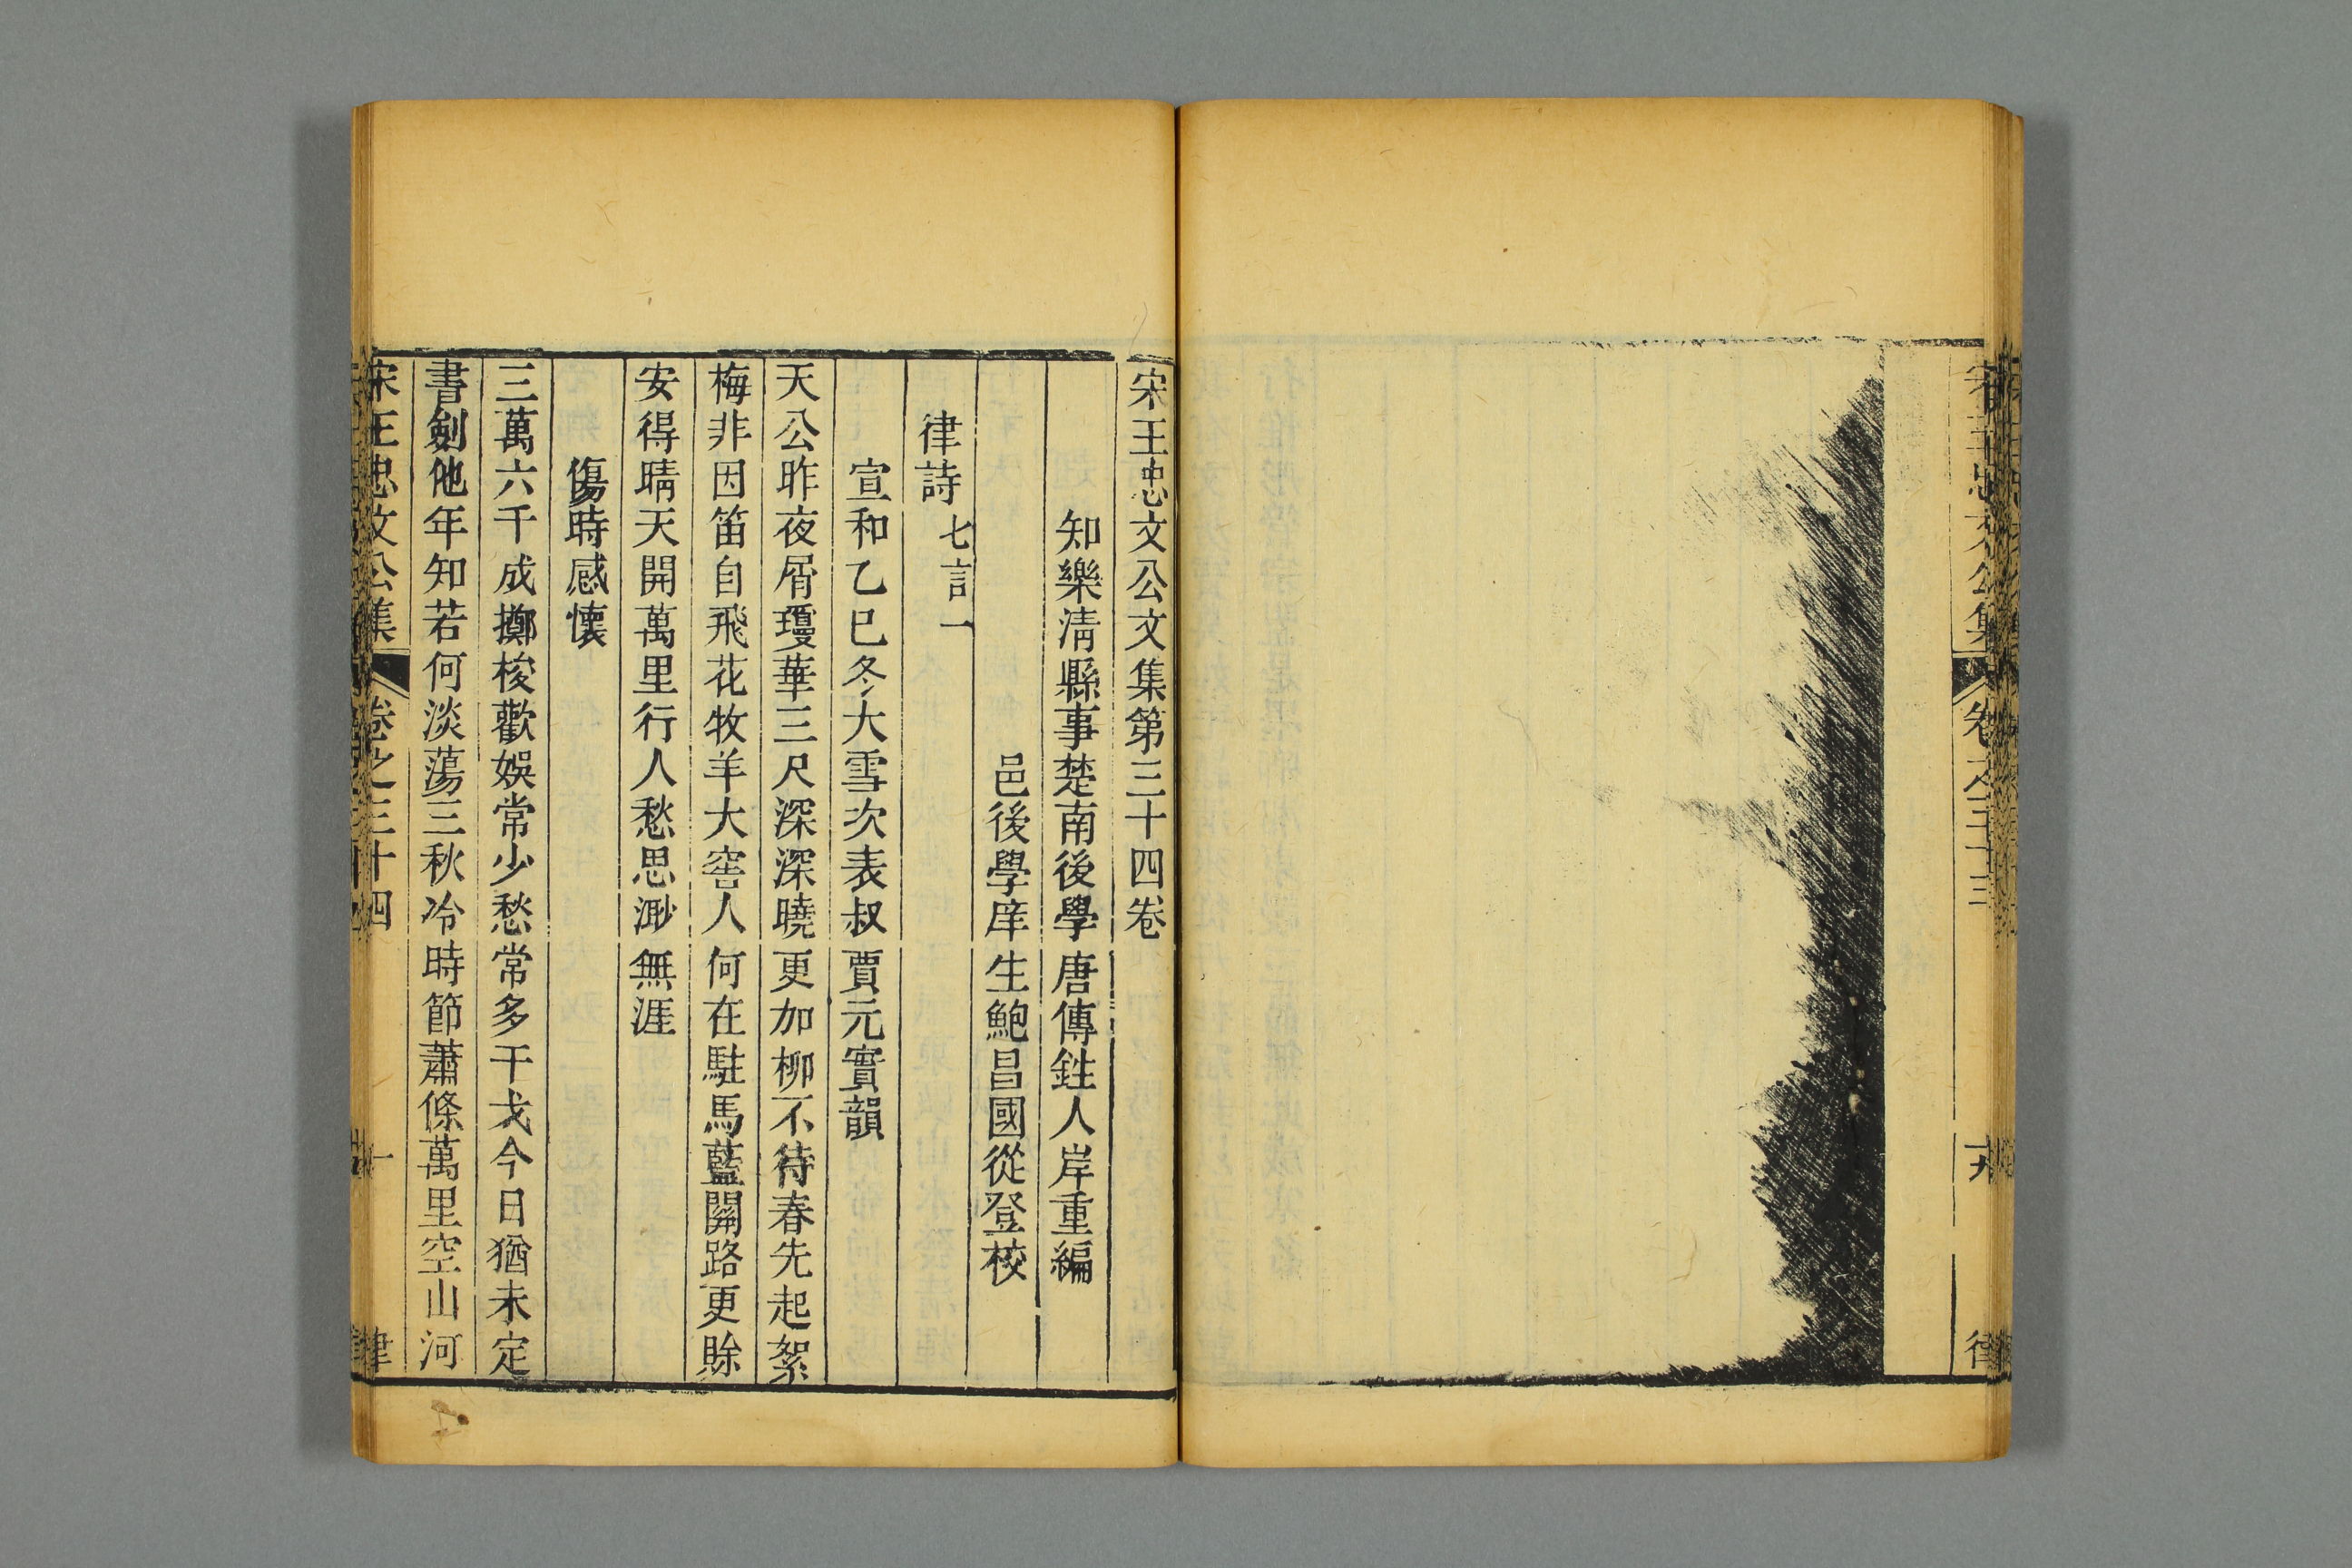 宋王忠文公集
卷之三十三
宋王忠文公文集第三十四卷
知樂清縣事楚南後學唐傳鉎人岸重編
邑後學庠生鮑昌國從登校
律詩七言一
宣和乙巳冬大雪次表叔賈元實韻
天公昨夜屑瓊華三尺深深曉更加柳不待春先起絮
梅非因笛自飛花牧羊大窖人何在駐馬藍關路更賒
安得晴天開萬里行人愁思渺無涯
傷時感懷
三萬六千成擲梭歡娛常少愁常多干戈今日猶未定
書劍他年知若何淡蕩三秋冷時節蕭條萬里空山河
宋王忠文公集
卷之三十四
一
律